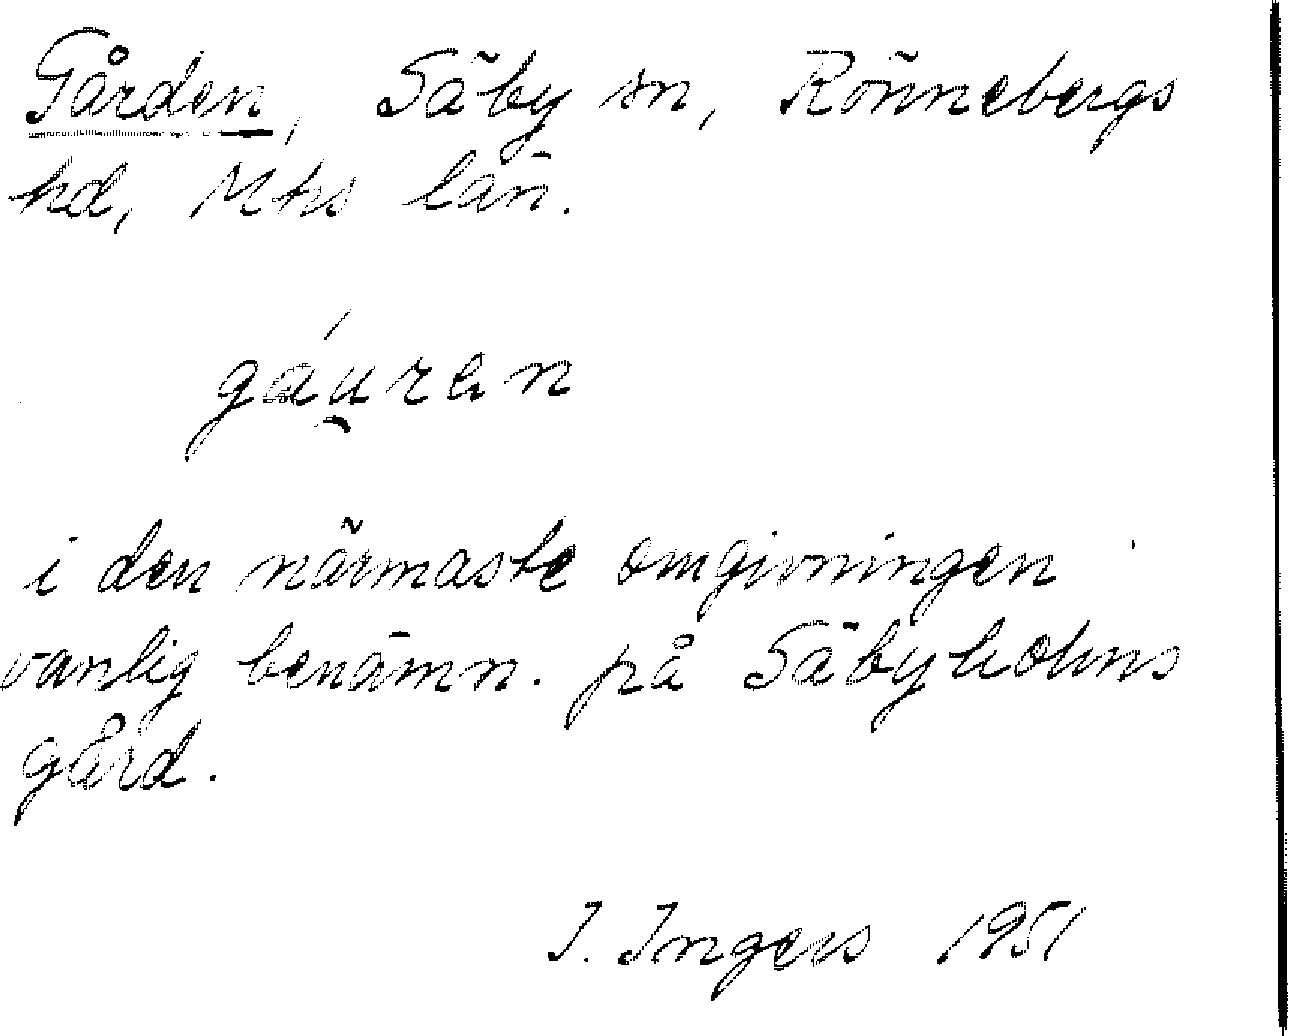 Gården, Säby sn, Rönnebergs
hd, Mhs län.
gáu̯ren
i den närmaste omgivningen
vanlig benämn. på Säbyholms
gård.
I. Ingers 1951